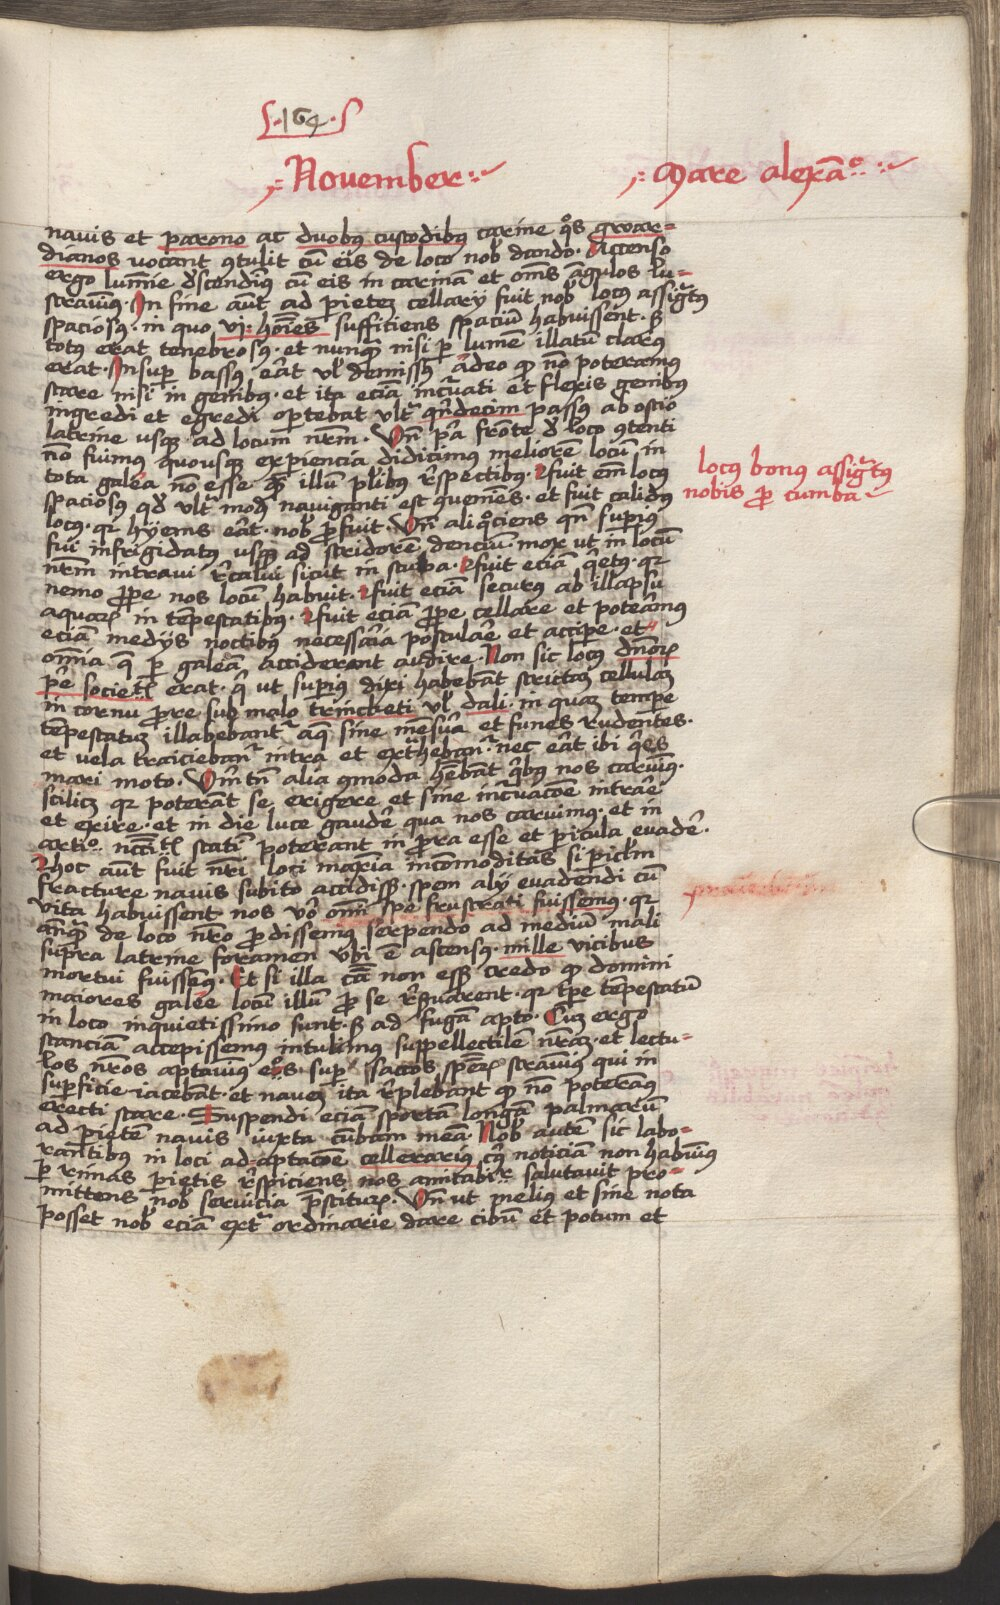 164
November
Mare alexā°
navis et parono ac duobꝰ custodibꝰ carine qͦs gwar-
dianos vocant ꝯtulit cū eis de loco nob̄ dando. Accenso
ergo lumīe d̄scendimꝰ cū eis in carinam et oms āgulos lu-
stravimꝰ. In fine aut ad pietez cellarij fuit nob̄ locꝰ assigtꝰ
spaciosꝰ. in quo vj: hoīes suffitiens spaciū habuissent. s̄
totꝰ erat tenebrosꝰ. et nunqꝫ nisi ꝑ lumē illatū clarꝰ
erat. Insuꝑ bassꝰ eāt vl̄ demissꝰ adeo ꝙ nō poteramꝰ
stare nisi in genibꝰ. et ita eciā incuati et flexis genibꝰ
ingredi et egredi oꝑtebat vltͣ qndecim passꝰ ab ostio
latrine usqꝫ ad locum nrm̄. Vn̄ pͥa fronte d̄ loco ꝯtenti
nō fuimꝰ quousqꝫ exꝑiencia didicimꝰ meliorē locū in
tota galea nō esse qꝫ illū pl̄ibꝰ r̄spectibꝰ. fuit em̄ locꝰ
spaciosꝰ qd̄ vltͣ modū naviganti est ꝯueniēs. et fuit calidꝰ
locꝰ. qr hyems eāt. nob̄ ꝓfuit. Vn̄ aliqͦciens qn̄ suꝑiꝰ
fui infrigidatꝰ usqꝫ ad stridorē denciū. mox ut in locū
nrm̄ intravi r̄calui sicut in stuba. fuit eciā qͥetꝰ. qr
nemo ꝓpe nos locū habuit. fuit eciā securꝰ ab illapsu
aquarꝝ in tēpestatibꝰ. fuit eciā ꝓpe cellare et poteāmꝰ
eciā medijs noctibꝰ necessāria postulare et acciꝑe. et
omīa q̄ ꝑ galeā acciderant audire. Non sic locꝰ dnōrꝝ
pͥe societꝭ erat. qͥ ut suꝑiꝰ dixi habebāt strictaꝫ cellulaꝫ
in cornu prore sub malo trincheti vl̄ dali. in quaꝫ tempe
tēpestatuꝫ illabebantͬ aq̄ sine mēsuͣa et funes rudentes.
et vela traiciebantͬ intra et extͣhebantͬ. nec eāt ibi qͥes
mari moto. Vm̄ tn̄ alia ꝯmoda hēbāt qͥbꝰ nos caruimꝰ.
scilicꝫ qr poterāt se erigere et sine incuacōe intrare
et exire. et in die luce gaudē qua nos carvimꝰ. et in
arti° nccītꝭ stati poterant in prora esse et ꝑicula evadē.
hoc aut fuit nrī loci maxia incōmoditas si ꝑiclm
fracture navis subito accidissꝫ. spem alij evadendi cū
vita habuissent nos vō om̄i spe frustrati fuissemꝰ. qr
anqꝫ de loco nrō ꝓdissemꝰ serpendo ad mediū mali
supra latrine foramen vbi ē ascensꝰ. mille vicibus
mortui fuissemꝰ. Et si illa cā non essꝫ credo ꝙ domini
maiores galee locū illū ꝓ se r̄seruarent. qr tꝑe tēpestatū
in loco inquietissimo sunt. s̄ ad fugā apto. Cuꝫ ergo
stanciā accepissemus intulimꝰ suppellectilē nrāꝫ. et lectu-
los nrōs aptavimꝰ eos suꝑ saccos spēꝝ stravimꝰ qui in
suꝑficie iacebāt. et naveꝫ ita r̄plebant ꝙ nō poteramꝰ
erecti stare. Suspendi eciā sportā longā palmarū
ad pietē navis iuxta cūbam meā. Nob̄ autē sic labo-
rantibꝰ in loci ad aptacōe cellerariꝰ cꝰ noticiam non habuimꝰ
ꝑ rimas pietis r̄spiciens nos amicabilr̄ salutavit pro-
mittens nob̄ servicia pstiturꝝ. Vn̄ ut meliꝰ et sine nota
posset nob̄ eciā extͣ ordinarie dare cibū et potum et
locꝰ bonꝰ assigtꝰ
nobis ꝓ cumba